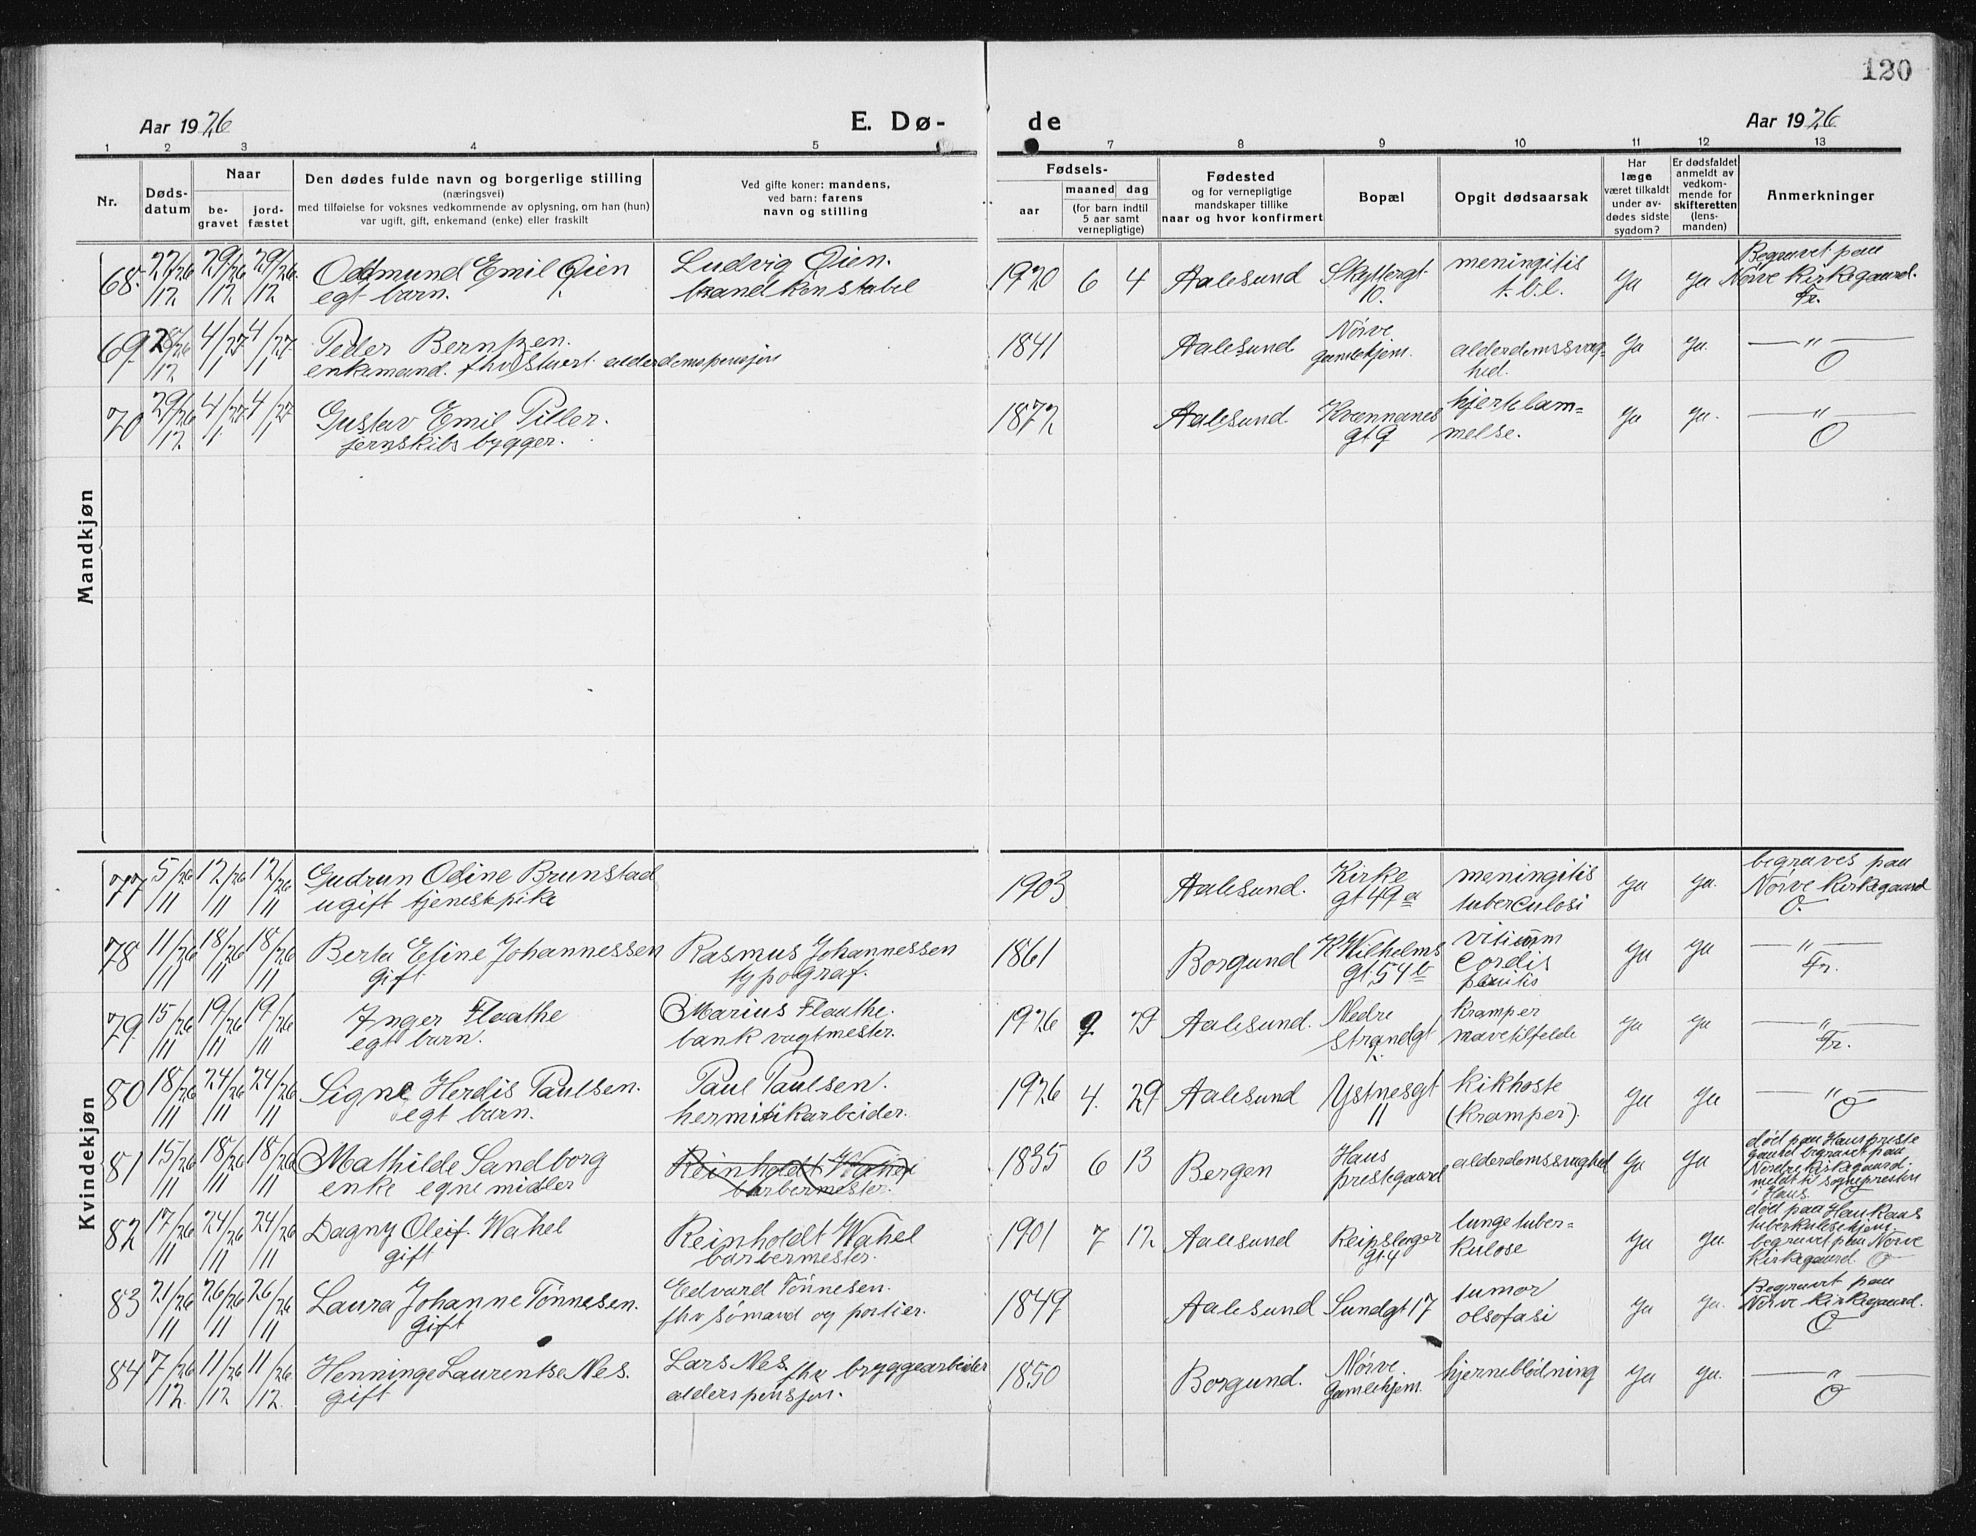 120
Aar 1926
E. Dø-
de
Aar 1926
1 2 3 4 5 7 8 9 10 11 12 13
Nr.
Døds-
datum
Naar
be-
gravet
jord-
fæstet
Den dødes fulde navn og borgerlige stilling
(næringsvei)
med tilføielse for voksnes vedkommende av oplysning, om han (hun)
var ugift, gift, enkemand (enke) eller fraskilt
Ved gifte koner: mandens,
ved barn: farens
navn og stilling
Fødsels-
aar
maaned
dag
(for barn indtil
5 aar samt
vernepligtige)
Fødested
og for vernepligtige
mandskaper tillike
naar og hvor konfirmert
Bopæl
Opgit dødsaarsak
Har
læge
været tilkaldt
under av-
dødes sidste
sygdom?
Er dødsfaldet
anmeldt av
vedkom-
mende for
skifteretten
(lens-
manden)
Anmerkninger
Mandkjøn
68. 27/26 12 29/26 12 29/26 12 Oddmund Emil Øien Ludvig Øien. 1920 6 4 Aalesund Skyttergt. meningitis Ja Ja Begravet paa
egt barn. brandkonstabel 10. t.b.l. Nørve kirkegaard.
Fr.
69. 28/26 12 4/27 1 4/27 1 Peder Berntzen. 1841 Aalesund Nørve alderdomssvag- Ja Ja. — " —
enkemand. fhv. stuert alderdomspensjon gamlehjem. hed. O
70 29/26 12 4/27 1 4/27 1 Gustav Emil Piller. 1872 Aalesund Kvennanes hjertelam= Ja Ja. — " —
jernskibsbygger. gt 9 melse. O
Kvindekjøn
77 5/26 11 12/26 11 12/26 11 Gudrun Odine Brunstad 1903 Aalesund. Kirke meningitis Ja Ja. begraves paa
ugift tjenestpike gt 49 a tuberculosi Nørve kirkegaard
O.
78 11/26 11 18/26 11 18/26 11 Berta Eline Johannessen Rasmus Johannessen 1861 Borgund K Wilhelms vitium Ja Ja — " —
gift typograf. gt 54 b cordis Fr.
79. 15/26 11 19/26 11 19/26 11 Inger Flaathe Marius Flaathe. 1926 9 29 Aalesund. Nedre kramper Ja Ja — " —
egt barn. bank vagtmester. strandgt mavetilfelde Fr.
80 18/26 11 24/26 11 24/26 11 Signe Herdis Paulsen. Paul Paulsen. 1926 4. 29 Aalesund Ystnesgt kikhoste Ja Ja — " —
egt barn. hermitikarbeider. 11 (kramper). O
81 15/26 11 18/26 11 18/26 11 Mathilde Sandborg Reinholdt Wahel 1835 6 13 Bergen Haus alderdomssvaghed Ja Ja død paa Haus preste
enke egne midler barbermester. prestegaard gaard begravet paa
Nordre kirkegaard.
meldt til sognepresten
i Haus. O
82 17/26 11 24/26 11 24/26 11 Dagny Oleif. Wahel Reinholdt Wahel 1901 7 12 Aalesund Reipslager lunge tuber- Ja Ja. død paa Haukaas
gift barbermester. gt. 4 kulose tuberkulosehjem.
begravet paa Nørve
kirkegaard O
83 21/26 11 26/26 11 26/26 11 Laura Johanne Tønnesen. Edvard Tønnesen. 1849 Aalesund Sundgt 17 tumor Ja Ja. Begravet paa
Gift fhv sømand og portier. olsofasi Nørve kirkegaard.
O
84 7/26 12. 11/26 12 11/26 12. Henninge Laurentse Nes. Lars Nes. fhv bryggearbeider 1850 Borgund. Nørve hjerneblødning Ja Ja. — " —
gift alderspensjon. Gamlehjem. O